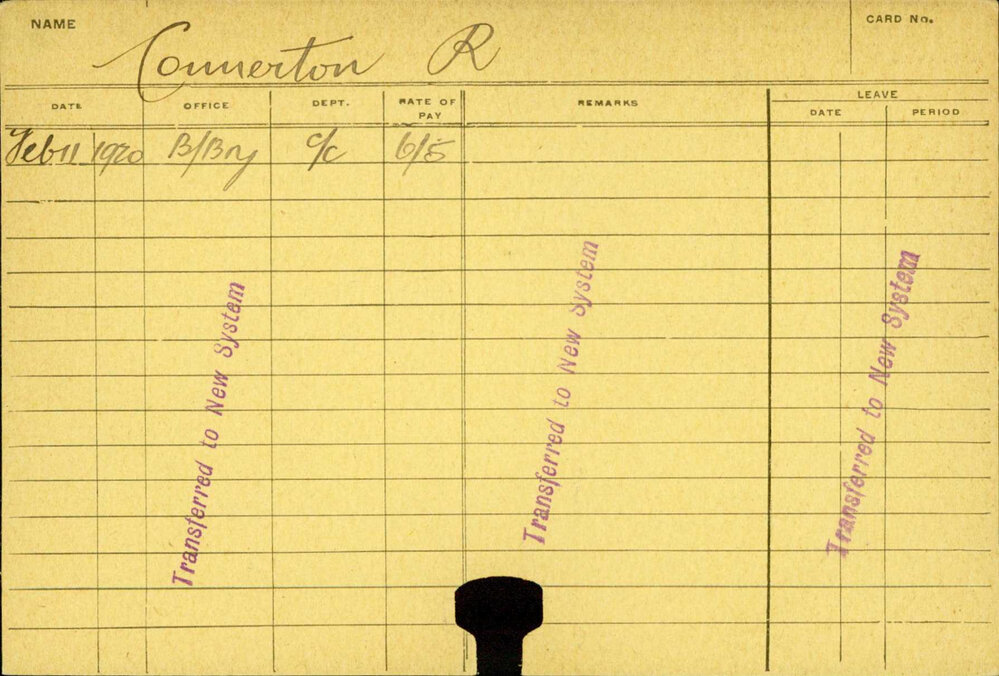 NAME
CARD No.
Connerton R
DATE OFFICE DEPT. RATE OF PAY REMARKS LEAVE
DATE PERIOD
Feb 11 1920 B/Bry c/c 6/5
Transferred to New System
Transferred to New System
Transferred to New System